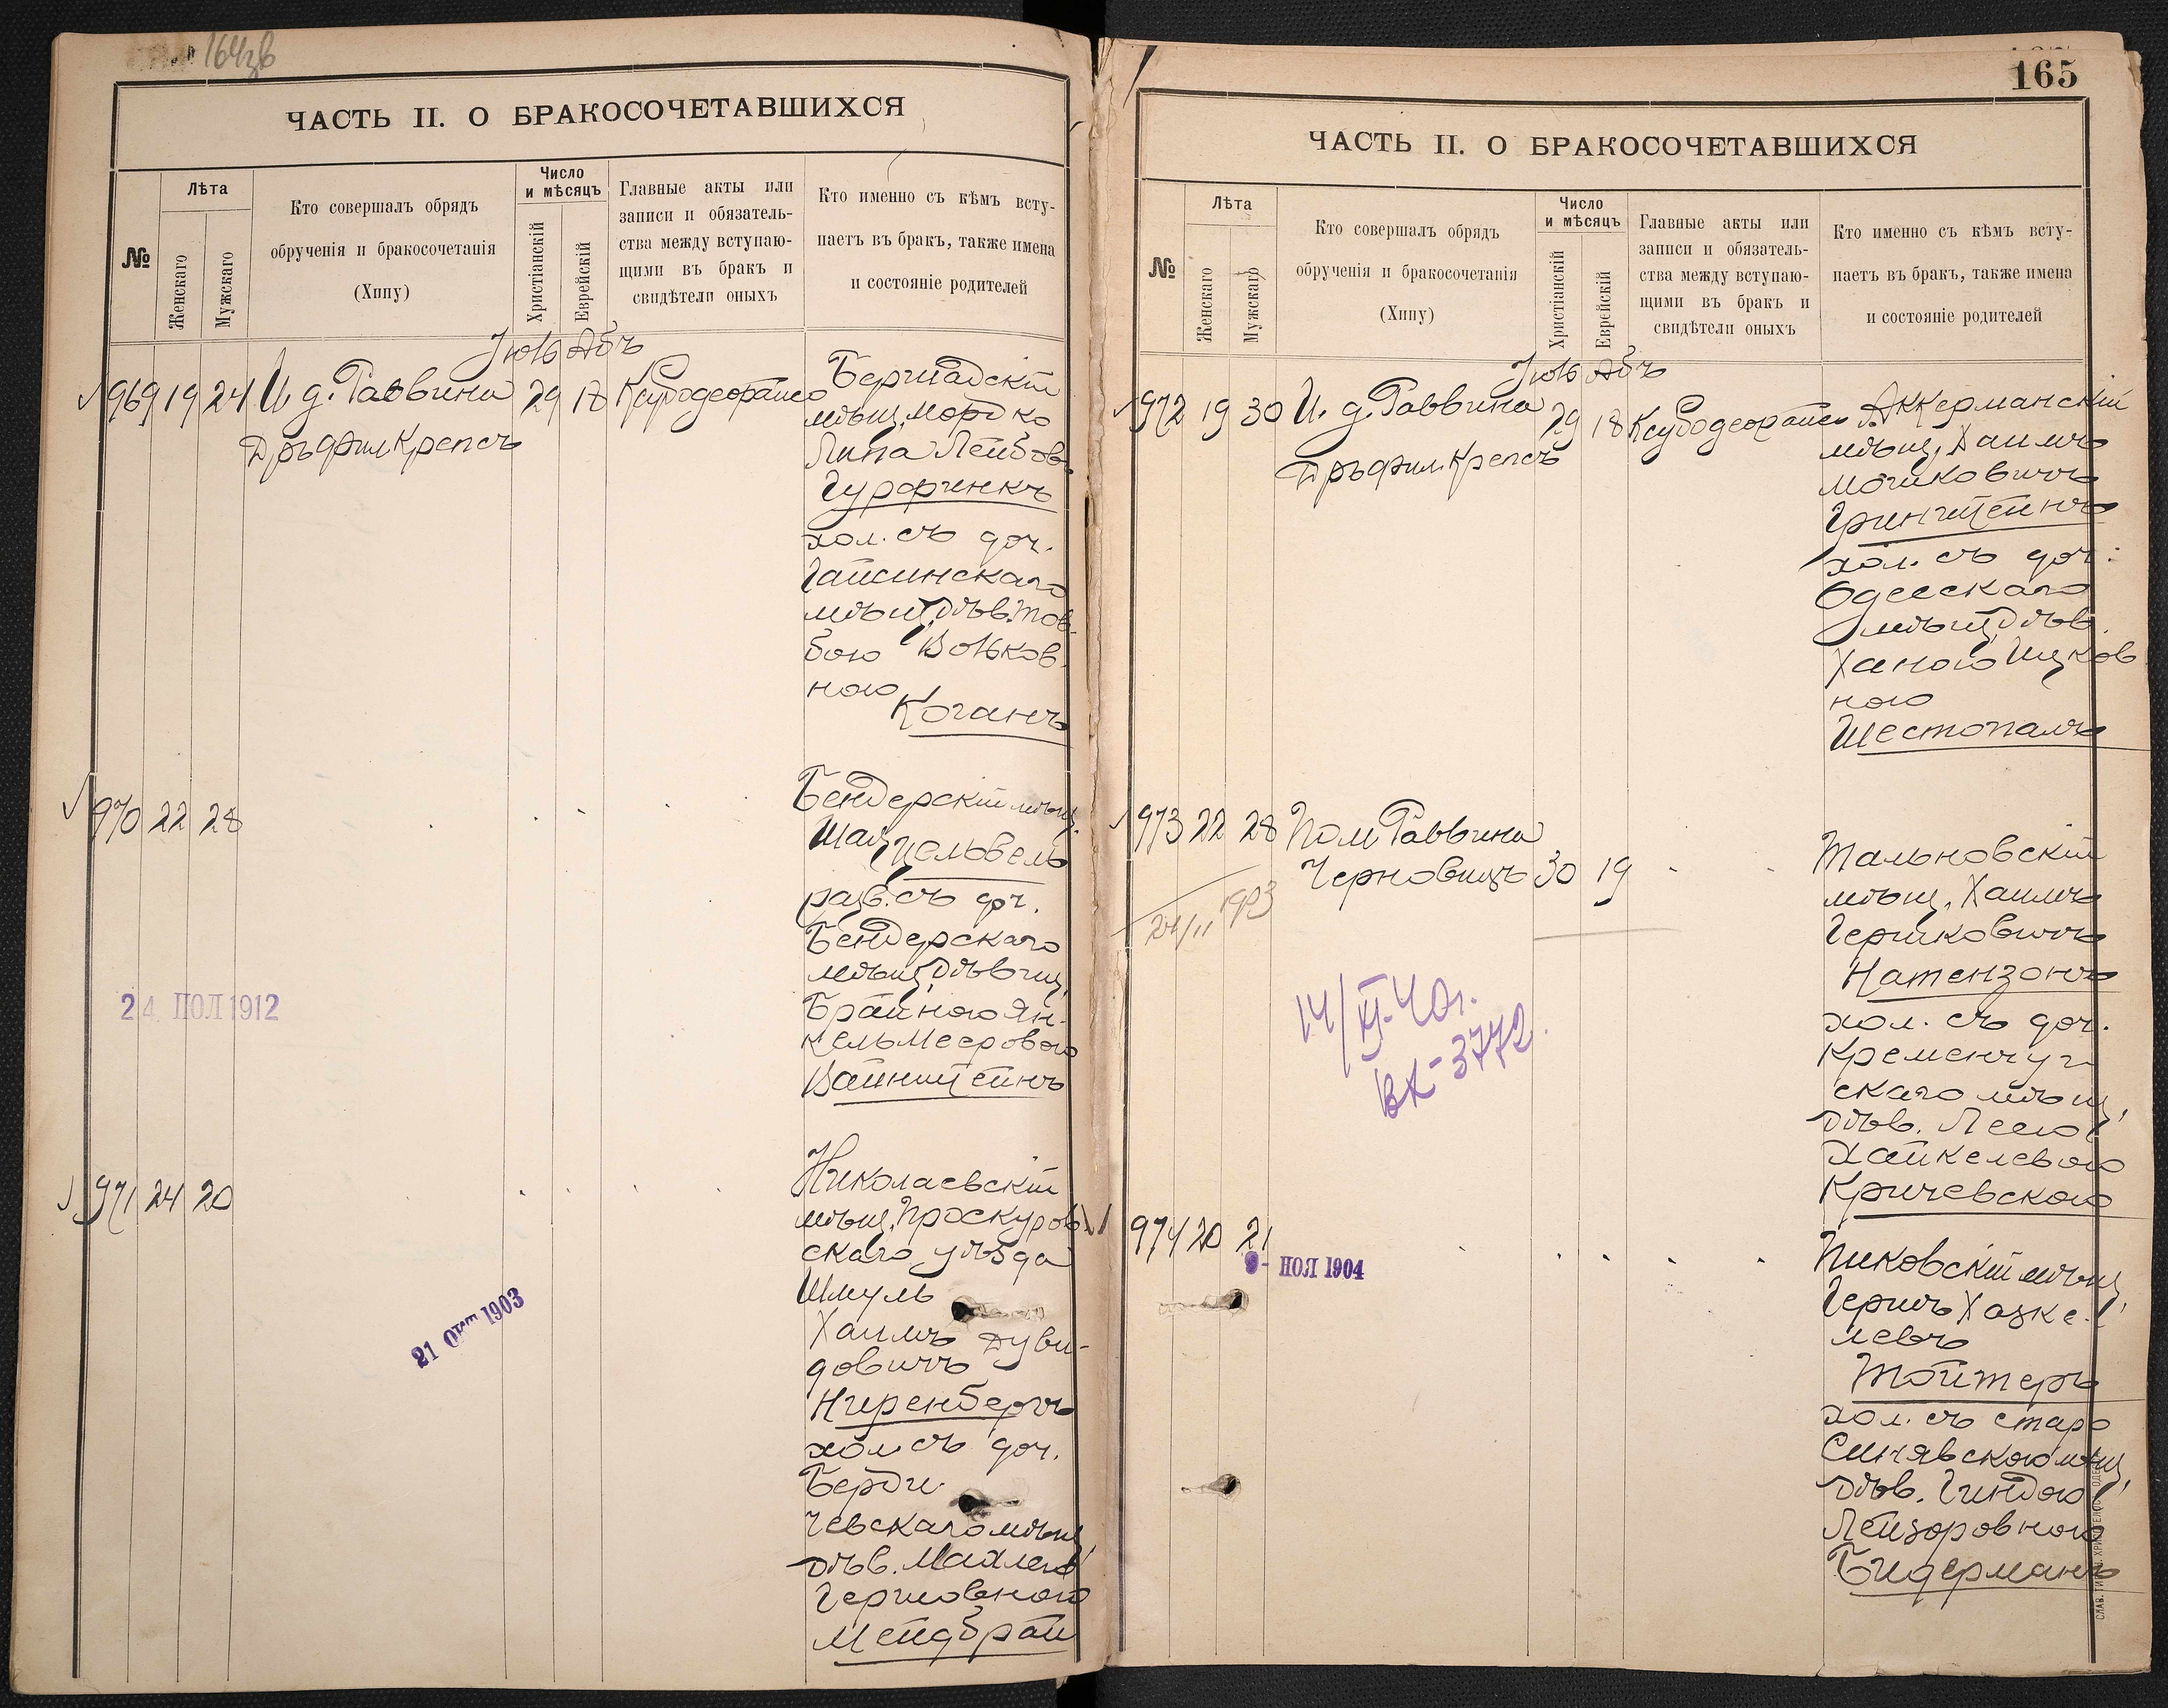 164зв
ЧАСТЬ II. О БРАКОСОЧЕТАВШИХСЯ
№
Лѣта
Женскаго
Мужскаго
Кто совершалъ обрядъ
обрученія и бракосочетанія
(Хипу)
Число
и мѣсяцъ
Христіанскій
Еврейскій
Главные акты или
записи и обязатель-
ства между вступаю-
щими въ бракъ и
свидѣтели оныхъ
Кто именно съ кѣмъ всту-
паетъ въ бракъ, также имена
и состояніе родителей
Іюль Абъ
969 19 24 И. д. Раввина 29 18
Дръ Фил Крепсъ
Бершадскій
мѣщ. Мордко
Липа Лейбов.
Гурфинкъ
хол. съ доч.
Гайсинскаго
мѣщ. дѣв. Тов-
бою Вольков-
ною
Коганъ
970 22 28
Бендерскій мѣщ.
Шая Цельвель
разв. съ доч.
Бендерскаго
мѣщ. дѣвиц.
Брайною Ян-
кель Мееровою
Вайнштейнъ
24 ІЮЛ 1912
971 24 20
Николаевскій
мѣщ. Проскуров
скаго уѣзда
Шмуль
Хаимъ Дуви-
довичъ
Ниренбергъ
хол. съ доч.
Берди-
чевскаго мѣщ.
дѣв. Махлею
Гершовною
Мейдбрай
21 ОКТ 1903
165
ЧАСТЬ II. О БРАКОСОЧЕТАВШИХСЯ
№
Лѣта
Женскаго
Мужскаго
Кто совершалъ обрядъ
обрученія и бракосочетанія
(Хипу)
Число
и мѣсяцъ
Христіанскій
Еврейскій
Главные акты или
записи и обязатель-
ства между вступаю-
щими въ бракъ и
свидѣтели оныхъ
Кто именно съ кѣмъ всту-
паетъ въ бракъ, также имена
и состояніе родителей
Іюль Абъ
972 19 30 И. д. Раввина 29 18
Дръ Фил. Крепсъ
Аккерманскій
мѣщ. Хаимъ
Мошковичъ
Гринштейнъ
хол. съ доч.
Одесскаго
мѣщ. дѣв.
Ханою Ицков
ною
Шестопалъ
973 22 28 Пом Раввина
Черновицъ 30 19
Тальновскій
мѣщ. Хаимъ
Гершковичъ
Натензонъ
хол. съ доч.
Кременчуг
скаго мѣщ.
дѣв. Леею
Хайкелевою
Кричевскою
14/XI-40г.
ВК-3772.
974 20 21
9- НОЯ 1904
Пиковскій мѣщ.
Гершъ Хазке-
левъ
Тойтеръ
хол. съ старо
Синявскою мѣщ.
дѣв. Гиндою
Лейзоровною
Бидерманъ